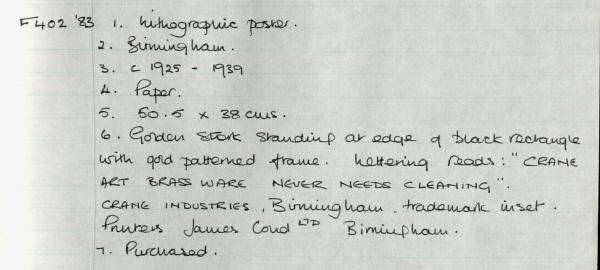 F402 '83 1. Lithographic poster.
2. Birmingham.
3. c 1925 - 1939
4. Paper.
5. 50.5 x 38 cms.
6. Golden stork standing at edge of black rectangle
with gold patterned frame. Lettering reads: "CRANE
ART BRASS WARE NEVER NEEDS CLEANING".
CRANE INDUSTRIES, Birmingham. trademark inset.
Printers James Cond LTD Birmingham.
7. Purchased.